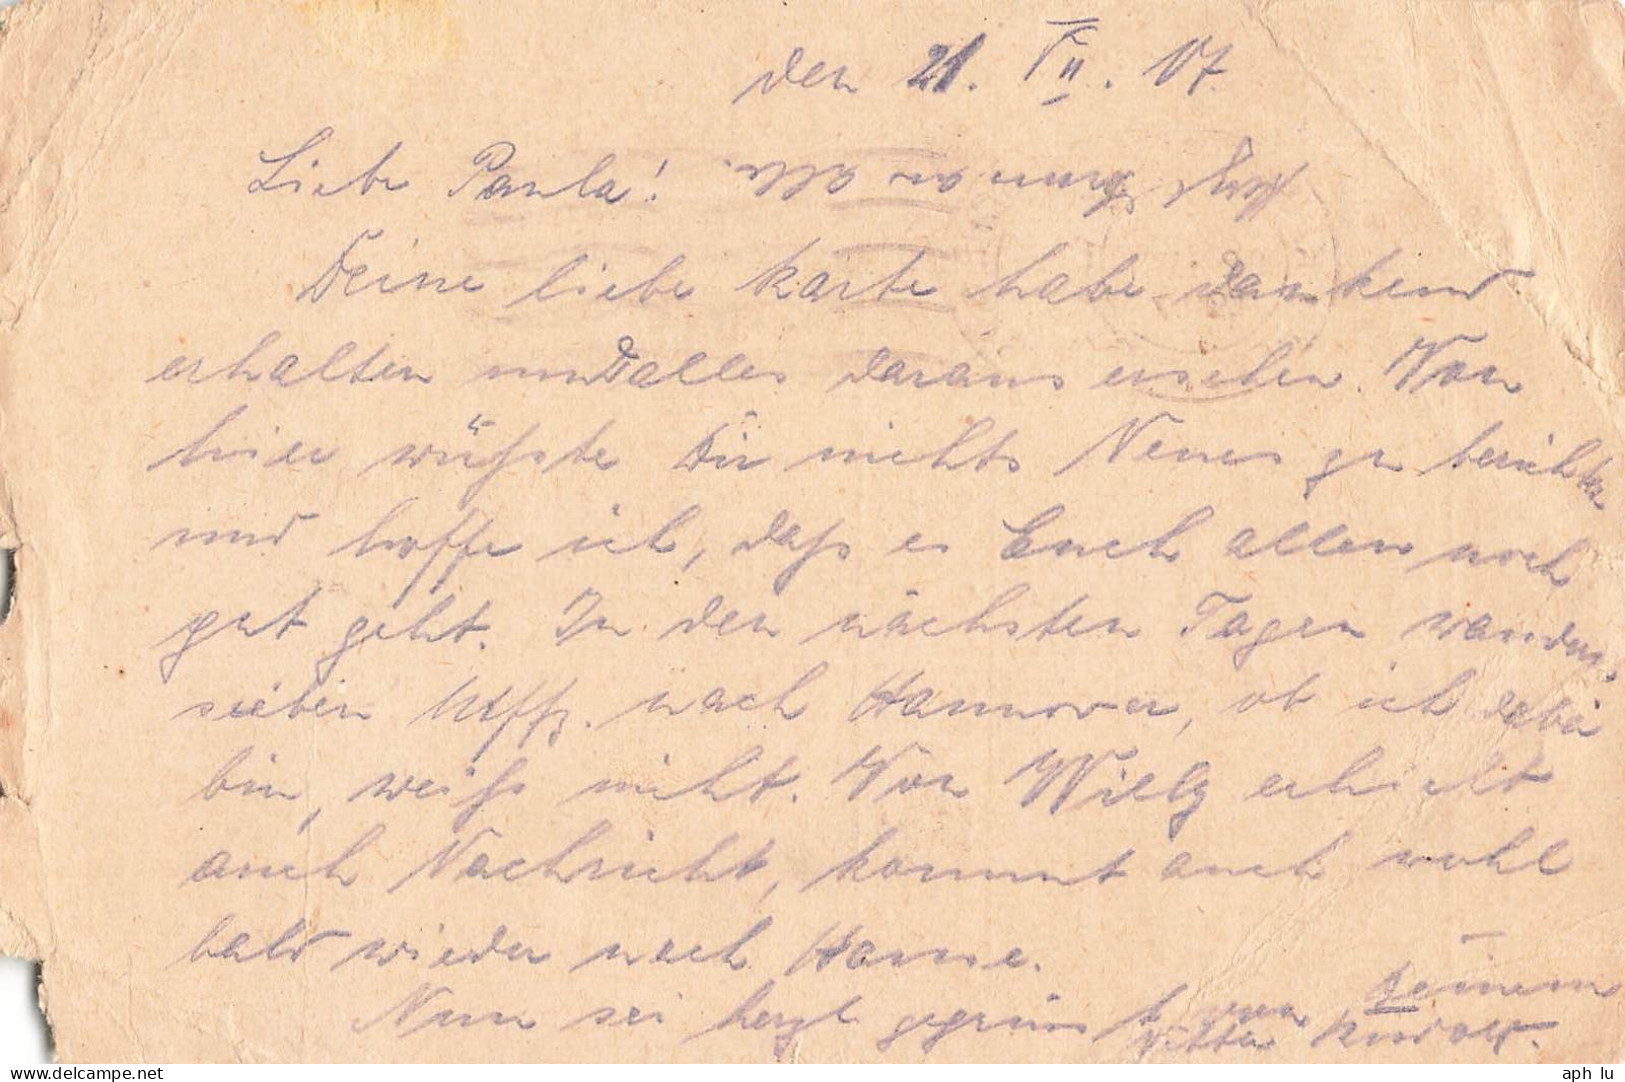 den 21. VII. 17.
Liebe Paula!
an alle
Deine liebe Karte habe dankend
erhalten und alles daraus ersehen. Von
hier wüßte Dir nichts Neues zu berichten
und hoffe ich, daß es Euch allen noch
gut geht. In den nächsten Tagen wandern
sieben Uffz. nach Hannover, ob ich dabei
bin, weiß nicht. Von Willy erhielt
auch Nachricht, kommt auch wohl
bald wieder nach Hause.
Nun sei herzl gegrüsst von Deinem
Vetter Rudolf.
aph lu